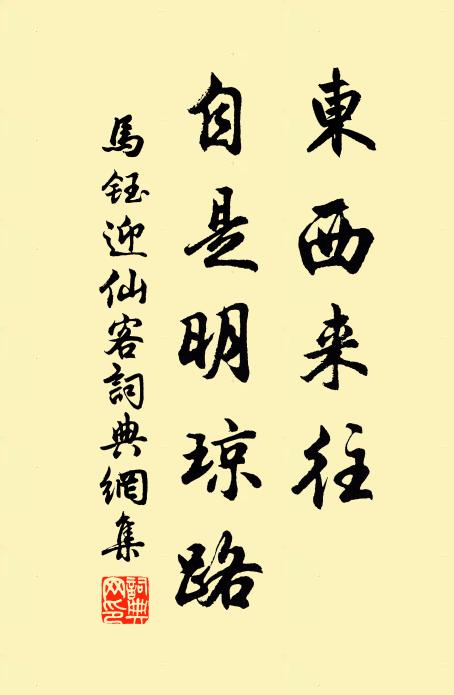 東西来往
自是明琼路
馬鈺迎仙客詞典網集
詞典网印